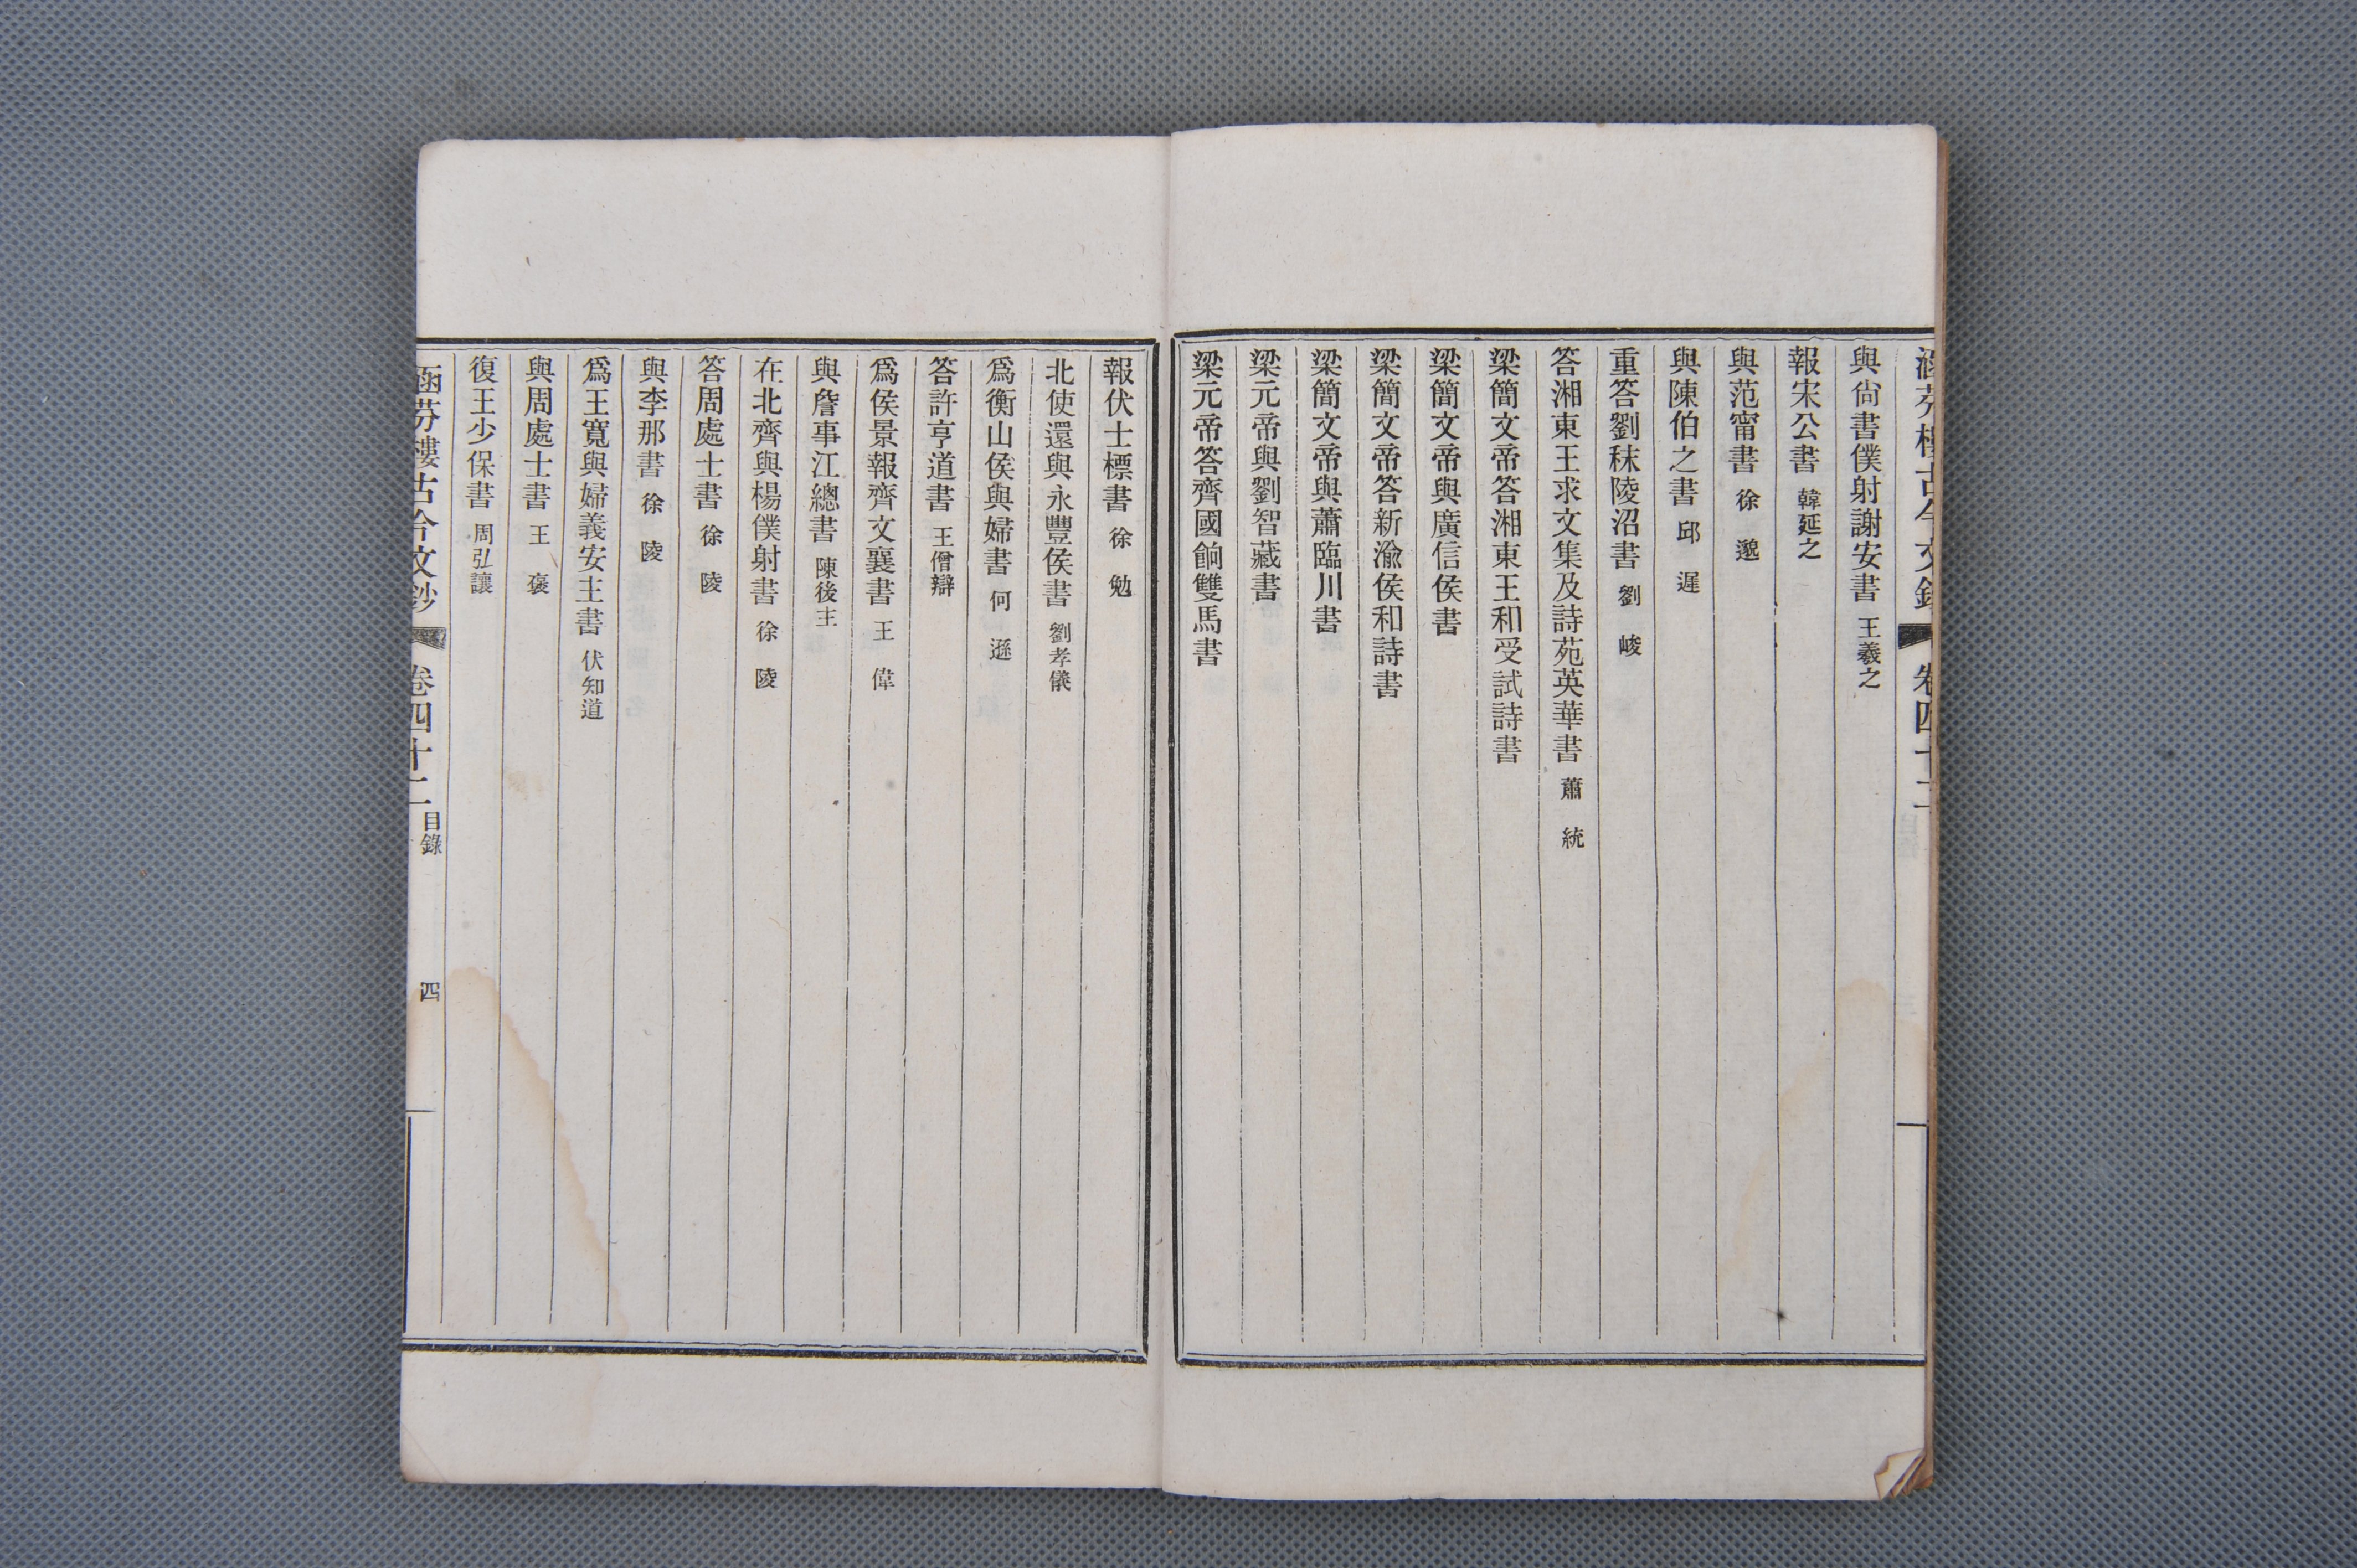 涵芬樓古今文鈔 卷四十二
與尙書僕射謝安書 王羲之
報宋公書 韓延之
與范甯書 徐邈
與陳伯之書 邱遲
重答劉秣陵沼書 劉峻
答湘東王求文集及詩苑英華書 蕭統
梁簡文帝答湘東王和受試詩書
梁簡文帝與廣信侯書
梁簡文帝答新渝侯和詩書
梁簡文帝與蕭臨川書
梁元帝與劉智藏書
梁元帝答齊國餉雙馬書
報伏士標書 徐勉
北使還與永豐侯書 劉孝儀
爲衡山侯與婦書 何遜
答許亨道書 王僧辯
爲侯景報齊文襄書 王偉
與詹事江總書 陳後主
在北齊與楊僕射書 徐陵
答周處士書 徐陵
與李那書 徐陵
爲王寬與婦義安主書 伏知道
與周處士書 王褒
復王少保書 周弘讓
涵芬樓古今文鈔 卷四十二 目錄 四